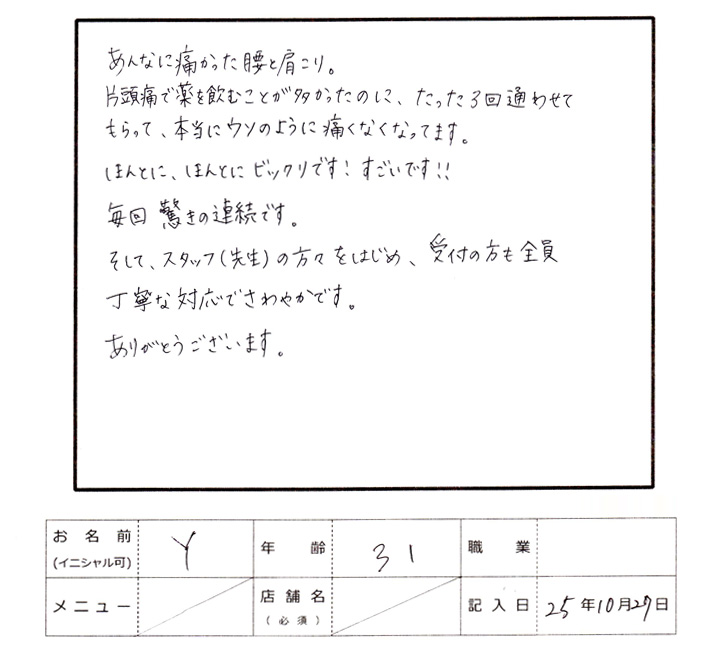 あんなに痛かった腰と肩こり。
片頭痛で薬を飲むことが多かったのに、たった3回通わせて
もらって、本当にウソのように痛くなくなってます。
ほんとに、ほんとにビックリです！すごいです!!
毎回 驚きの連続です。
そして、スタッフ(先生)の方々をはじめ、受付の方も全員
丁寧な対応でさわやかです。
ありがとうございます。
お名前 (イニシャル可) Y 年齢 31 職業
メニュー 店舗名 (必須) 記入日 25年10月27日